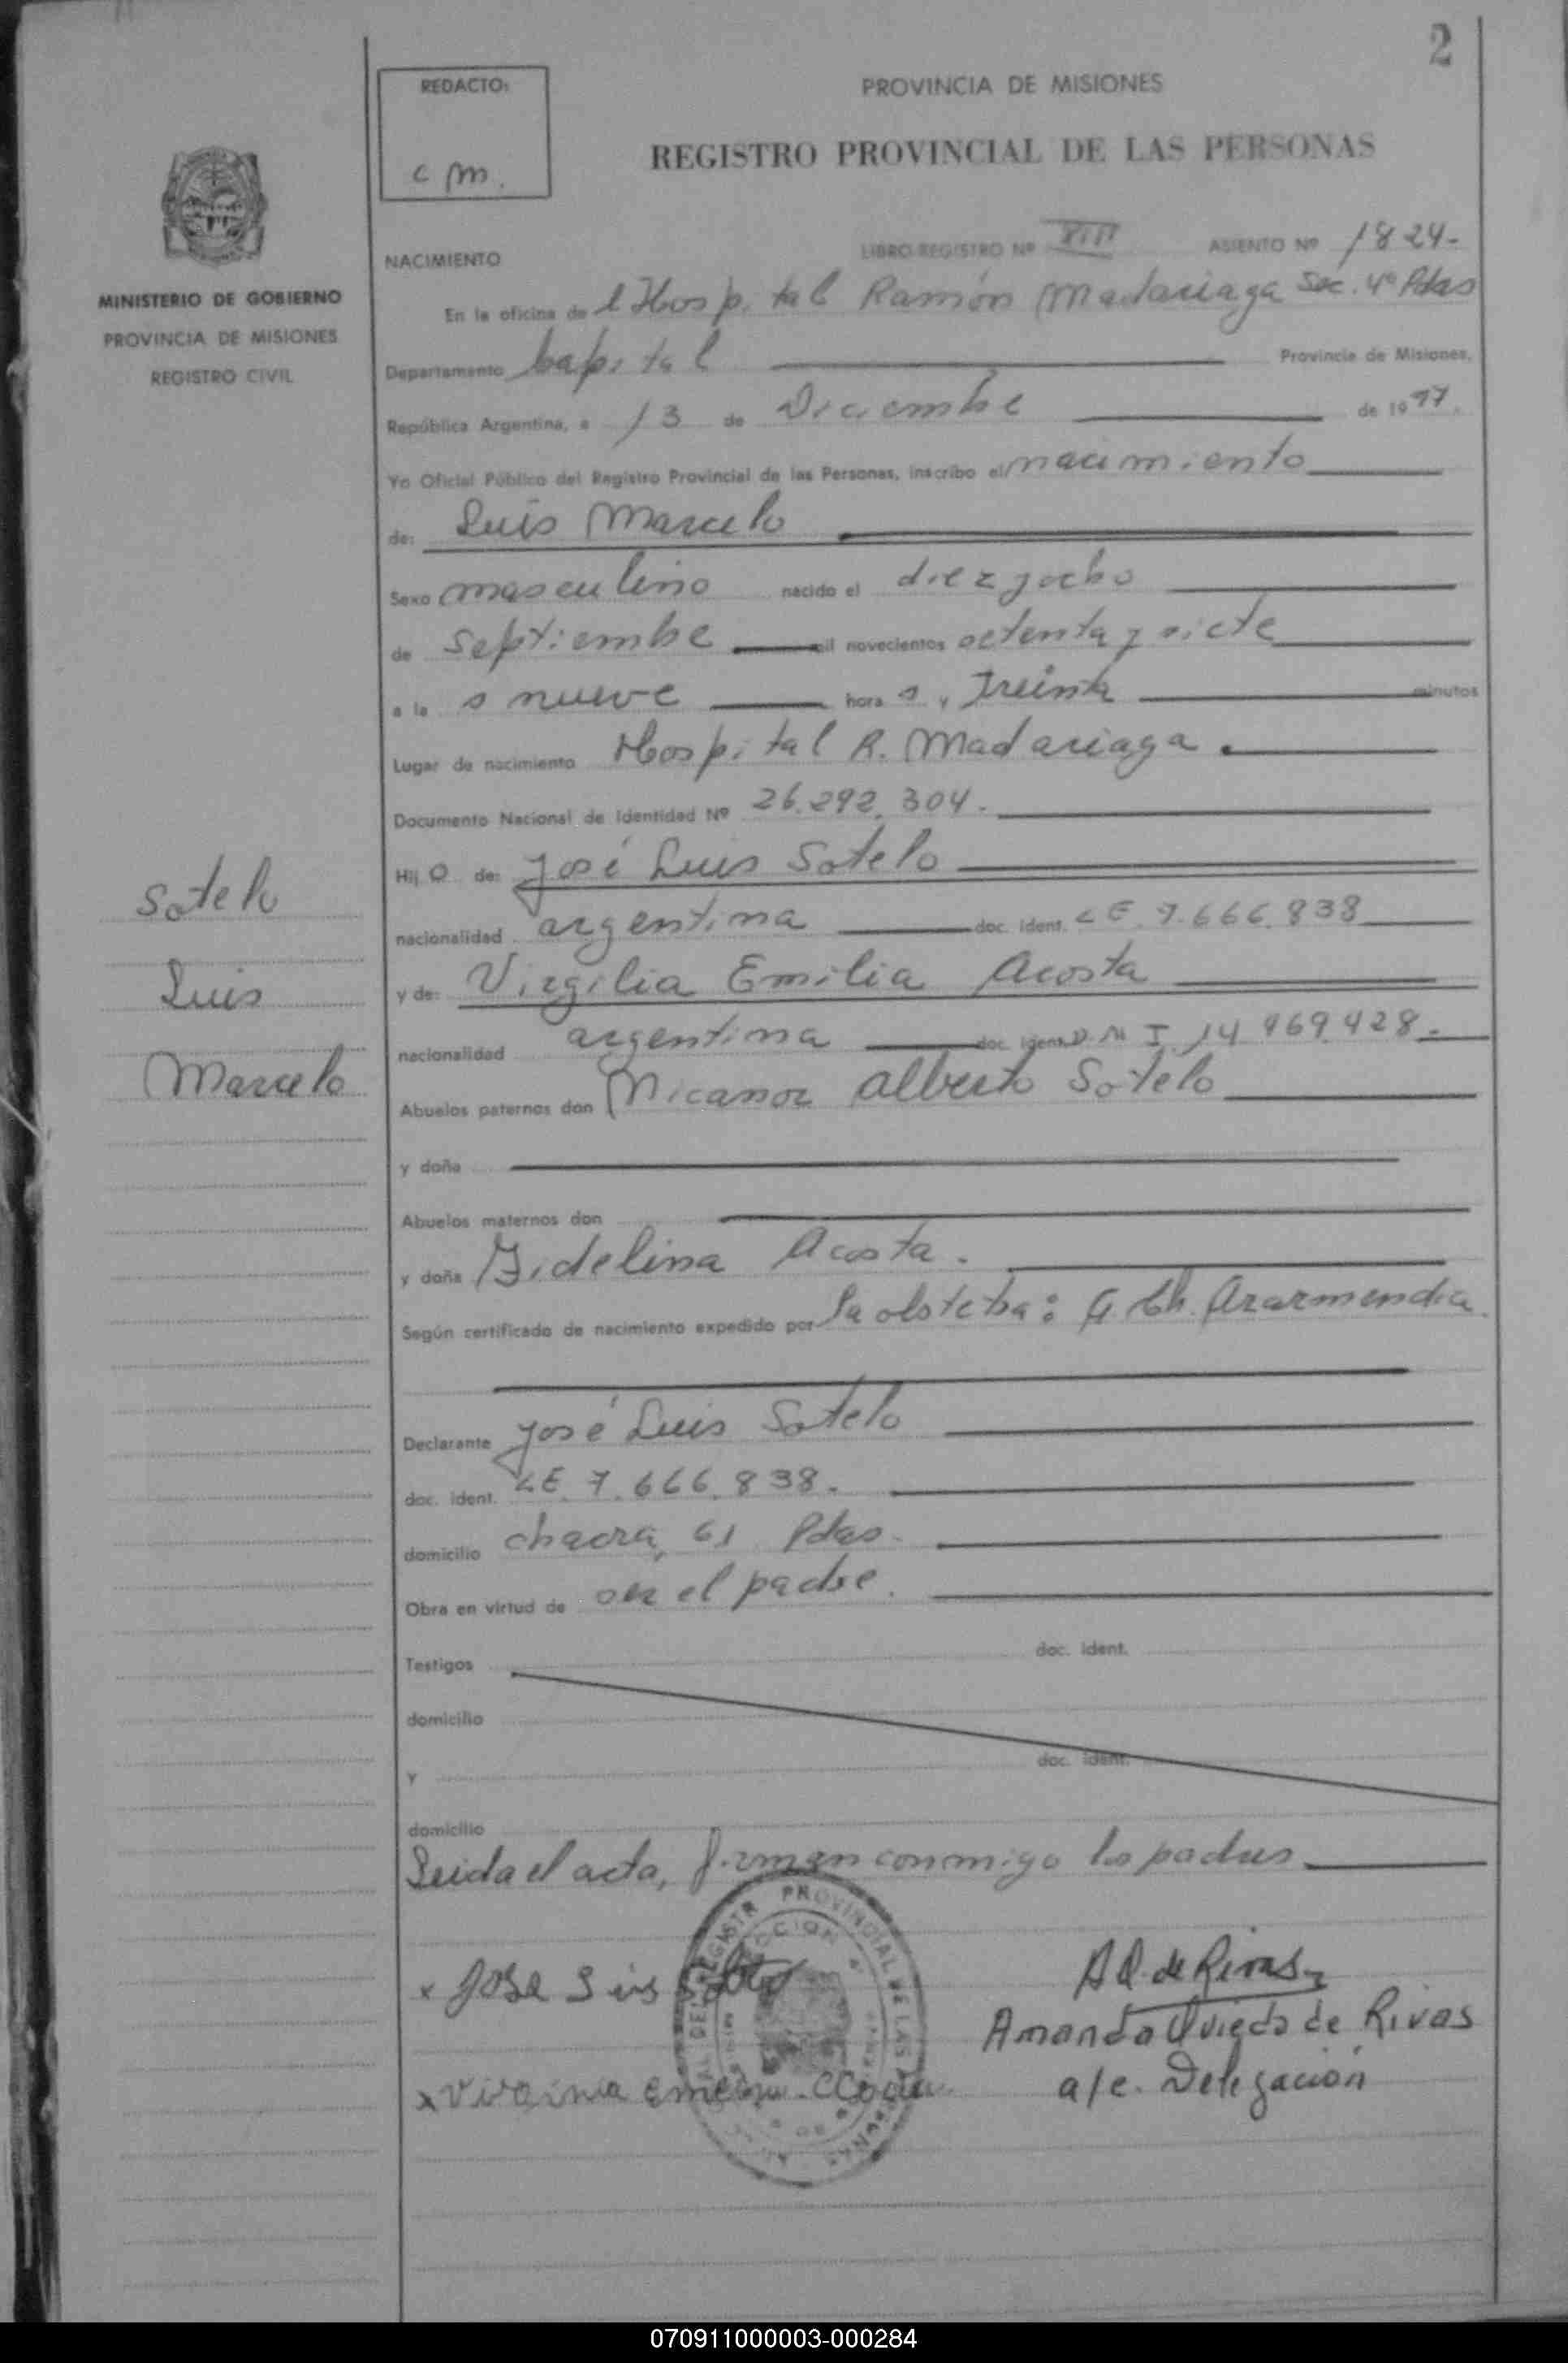 2
REDACTO:
c m.
PROVINCIA DE MISIONES
REGISTRO PROVINCIAL DE LAS PERSONAS
MINISTERIO DE GOBIERNO
PROVINCIA DE MISIONES
REGISTRO CIVIL
NACIMIENTO LIBRO REGISTRO Nº XIII ASIENTO Nº 1824-
En la oficina de l Hospital Ramón Madariaga Sec. 4ª Pdas
Departamento Capital Provincia de Misiones,
República Argentina, a 13 de Diciembre de 1977.
Yo Oficial Público del Registro Provincial de las Personas, inscribo el nacimiento
de: Luis Marcelo
Sexo masculino nacido el diezyocho
de Septiembre mil novecientos setenta y siete
a la s nueve hora s y Treinta minutos
Lugar de nacimiento Hospital R. Madariaga.
Documento Nacional de Identidad Nº 26.292.304.
Hij o de: José Luis Sotelo
nacionalidad argentina doc. ident. LE 7.666.838
y de: Virgilia Emilia Acosta
nacionalidad argentina doc. ident. D N I 14 969 428.
Sotelo
Luis
Marcelo
Abuelos paternos don Nicanor Alberto Sotelo
y doña
Abuelos maternos don
y doña Fidelina Acosta.
Según certificado de nacimiento expedido por la obstetra: G. Ch.
Declarante José Luis Sotelo
doc. ident. LE. 7.666.838.
domicilio chacra, 61 Pdas.
Obra en virtud de ser el padre.
Testigos doc. ident.
domicilio
Y doc. ident.
domicilio
Leida el acta, firman conmigo los padres
x Jose Luis Sotelo
A O. de Rivas
Amanda Oviedo de Rivas
a/c. Delegación
070911000003-000284